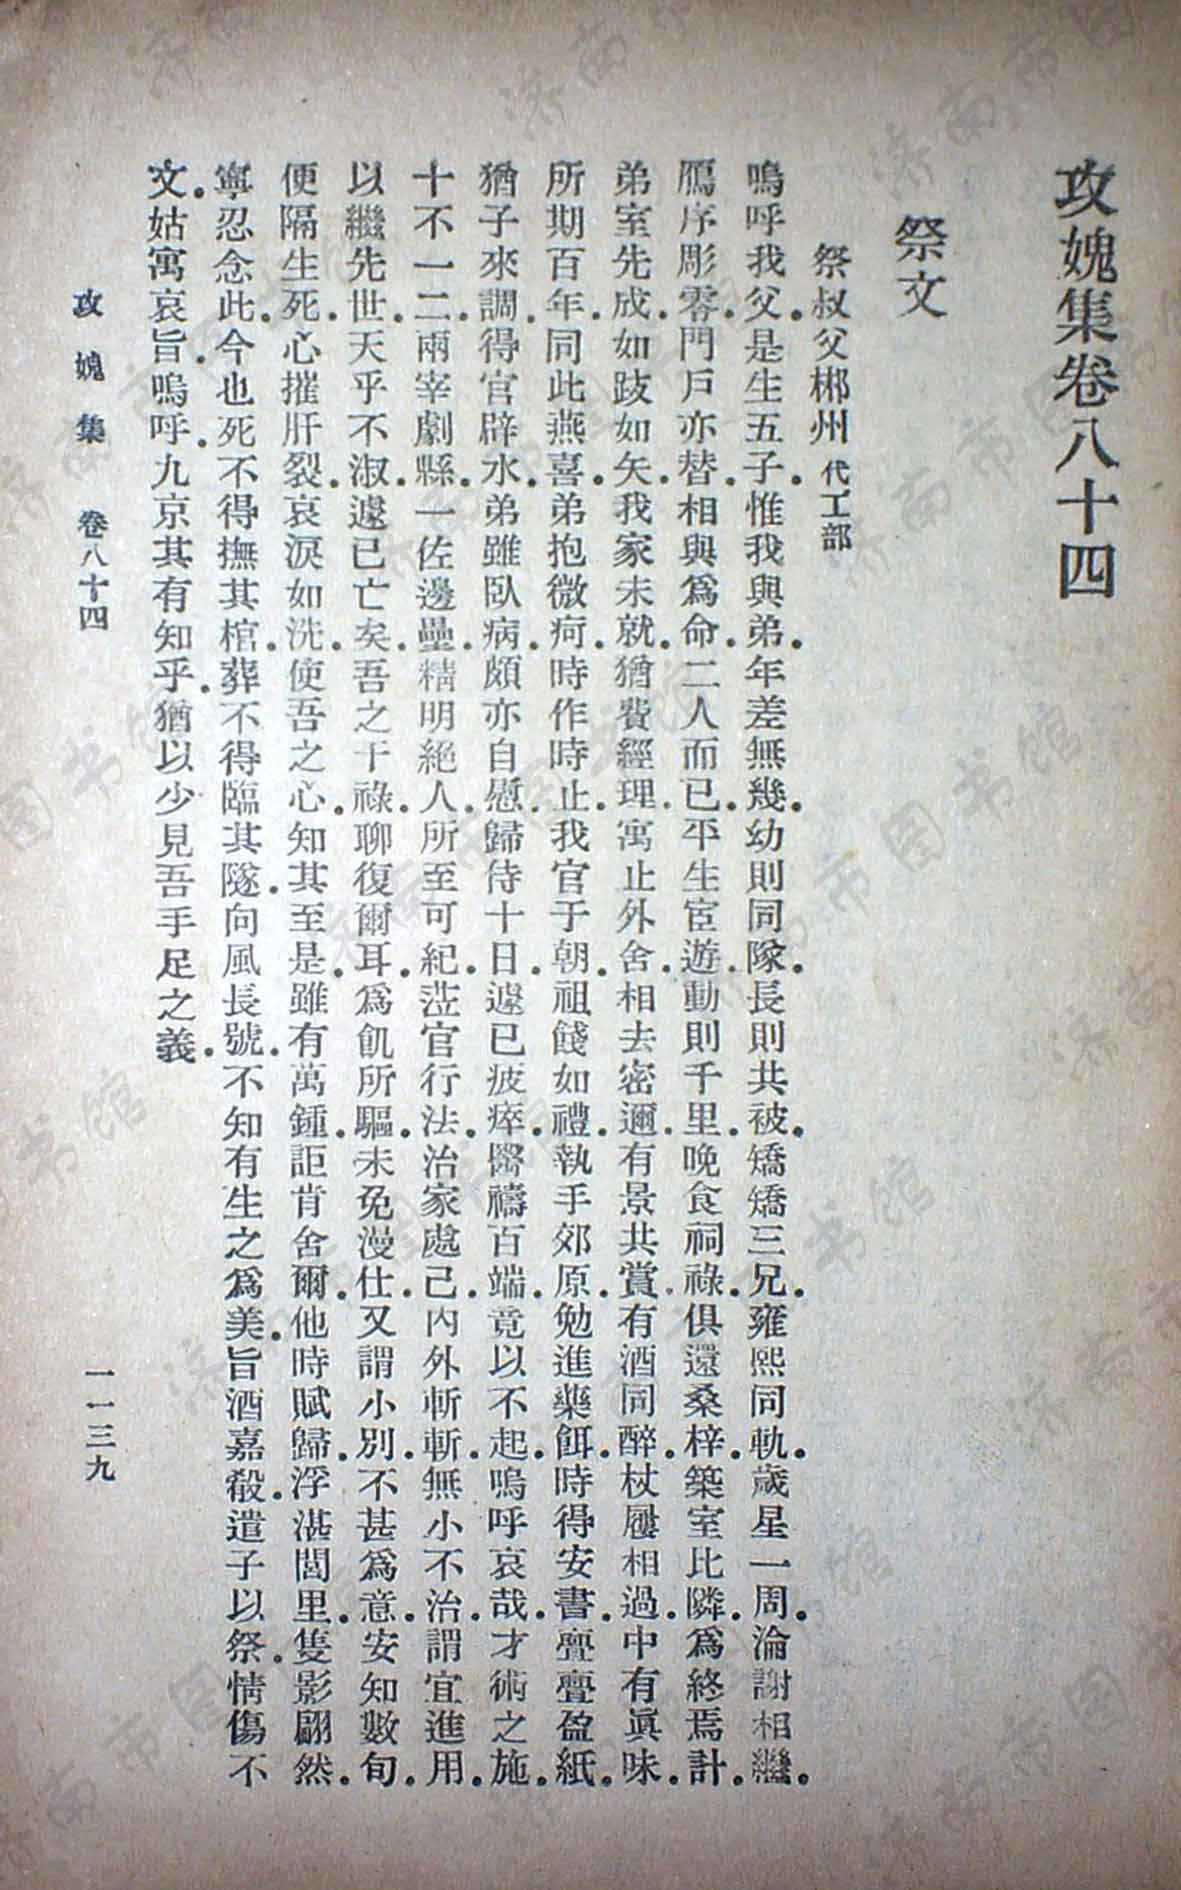 攻媿集卷八十四
祭文
祭叔父郴州 代工部
嗚呼我父。是生五子。惟我與弟。年差無幾。幼則同隊。長則共被。矯矯三兄。雍熙同軌。歲星一周。淪謝相繼。
鴈序彫零。門戶亦替。相與爲命。二人而已。平生宦遊。動則千里。晚食祠祿。俱還桑梓。築室比隣。爲終焉計。
弟室先成。如跂如矢。我家未就。猶費經理。寓止外舍。相去密邇。有景共賞。有酒同醉。杖屨相過。中有眞味。
所期百年。同此燕喜。弟抱微痾。時作時止。我官于朝。祖餞如禮。執手郊原。勉進藥餌。時得安書。亹亹盈紙。
猶子來調。得官辟水。弟雖臥病。頗亦自慰。歸侍十日。遽已疲瘁。醫禱百端。竟以不起。嗚呼哀哉。才術之施。
十不一二。兩宰劇縣。一佐邊壘。精明絕人。所至可紀。涖官行法。治家處己。內外斬斬。無小不治。謂宜進用。
以繼先世。天乎不淑。遽已亡矣。吾之干祿。聊復爾耳。爲飢所驅。未免漫仕。又謂小別。不甚爲意。安知數旬。
便隔生死。心摧肝裂。哀淚如洗。使吾之心。知其至是。雖有萬鍾。詎肯舍爾。他時賦歸。浮湛閭里。隻影翩然。
寧忍念此。今也死不得撫其棺。葬不得臨其隧。向風長號。不知有生之爲美。旨酒嘉殽。遣子以祭。情傷不
文。姑寓哀旨。嗚呼。九京其有知乎。猶以少見吾手足之義。
攻媿集 卷八十四
一一三九
济南市图书馆